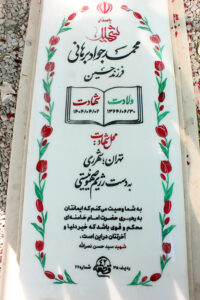 پاسدار
شهید
محمدجواد برهانی
فرزند حسین
ولادت
شهادت
۱۳۶۴/۰۶/۳۰
۱۴۰۴/۰۴/۰۲
محل شهادت:
تهران، شهرری
به دست رژیم صهیونیستی
به شما وصیت می‌کنم که ایمانتان
به رهبری حضرت امام خامنه‌ای
محکم و قوی باشد که خیر دنیا و
آخرتتان در این است.
شهید سید حسن نصرالله
ردیف ۳۵
شماره ۲۲